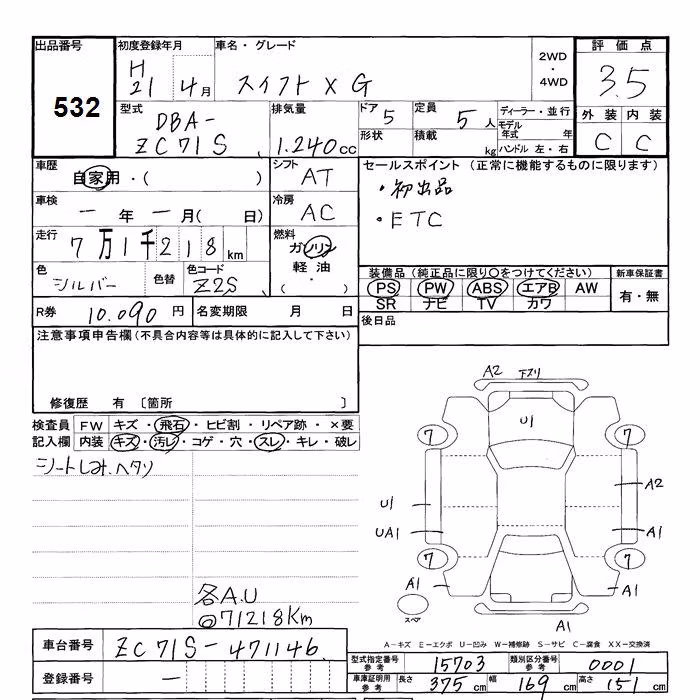 出品番号 初度登録年月 車名・グレード 2WD・4WD 評価点
532 H21 4月 スイフト XG 3.5
型式 排気量 ドア 5 定員 5人 ディーラー・並行 外装 内装
DBA-
ZC71S 1.240cc 形状 積載 kg モデル年式 年 C C
ハンドル 左・右
車歴 シフト セールスポイント (正常に機能するものに限ります)
自家用・( ) AT ・初出品
車検 冷房 ・ETC
一年 一月( 日) AC
走行 燃料
7万1千218km ガソリン
色 色替 色コード 軽油 装備品(純正品に限り○をつけてください) 新車保証書
シルバー Z2S ・( ) PS PW ABS エアB AW 有・無
SR ナビ TV カワ
R券 10.090円 名変期限 月 日 後日品
注意事項申告欄(不具合内容等は具体的に記入して下さい)
修復歴 有 〔箇所 〕
検査員 FW キズ・飛石・ヒビ割・リペア跡・×要
記入欄 内装 キズ・汚レ・コゲ・穴・スレ・キレ・破レ
シートしみ、ヘタリ
A2 下スリ
U1
7 7
A2
U1
UA1 A1
7 7
A1 A1
スペア
A1
各A.U
@71218Km
A-キズ E-エクボ U-凹み W-補修跡 S-サビ C-腐食 XX-交換済
車台番号 ZC71S-471146
型式指定番号 参考 15703 類別区分番号 参考 0001
登録番号 一
車庫証明用 参考 長さ 375cm 幅 169cm 高さ 151cm